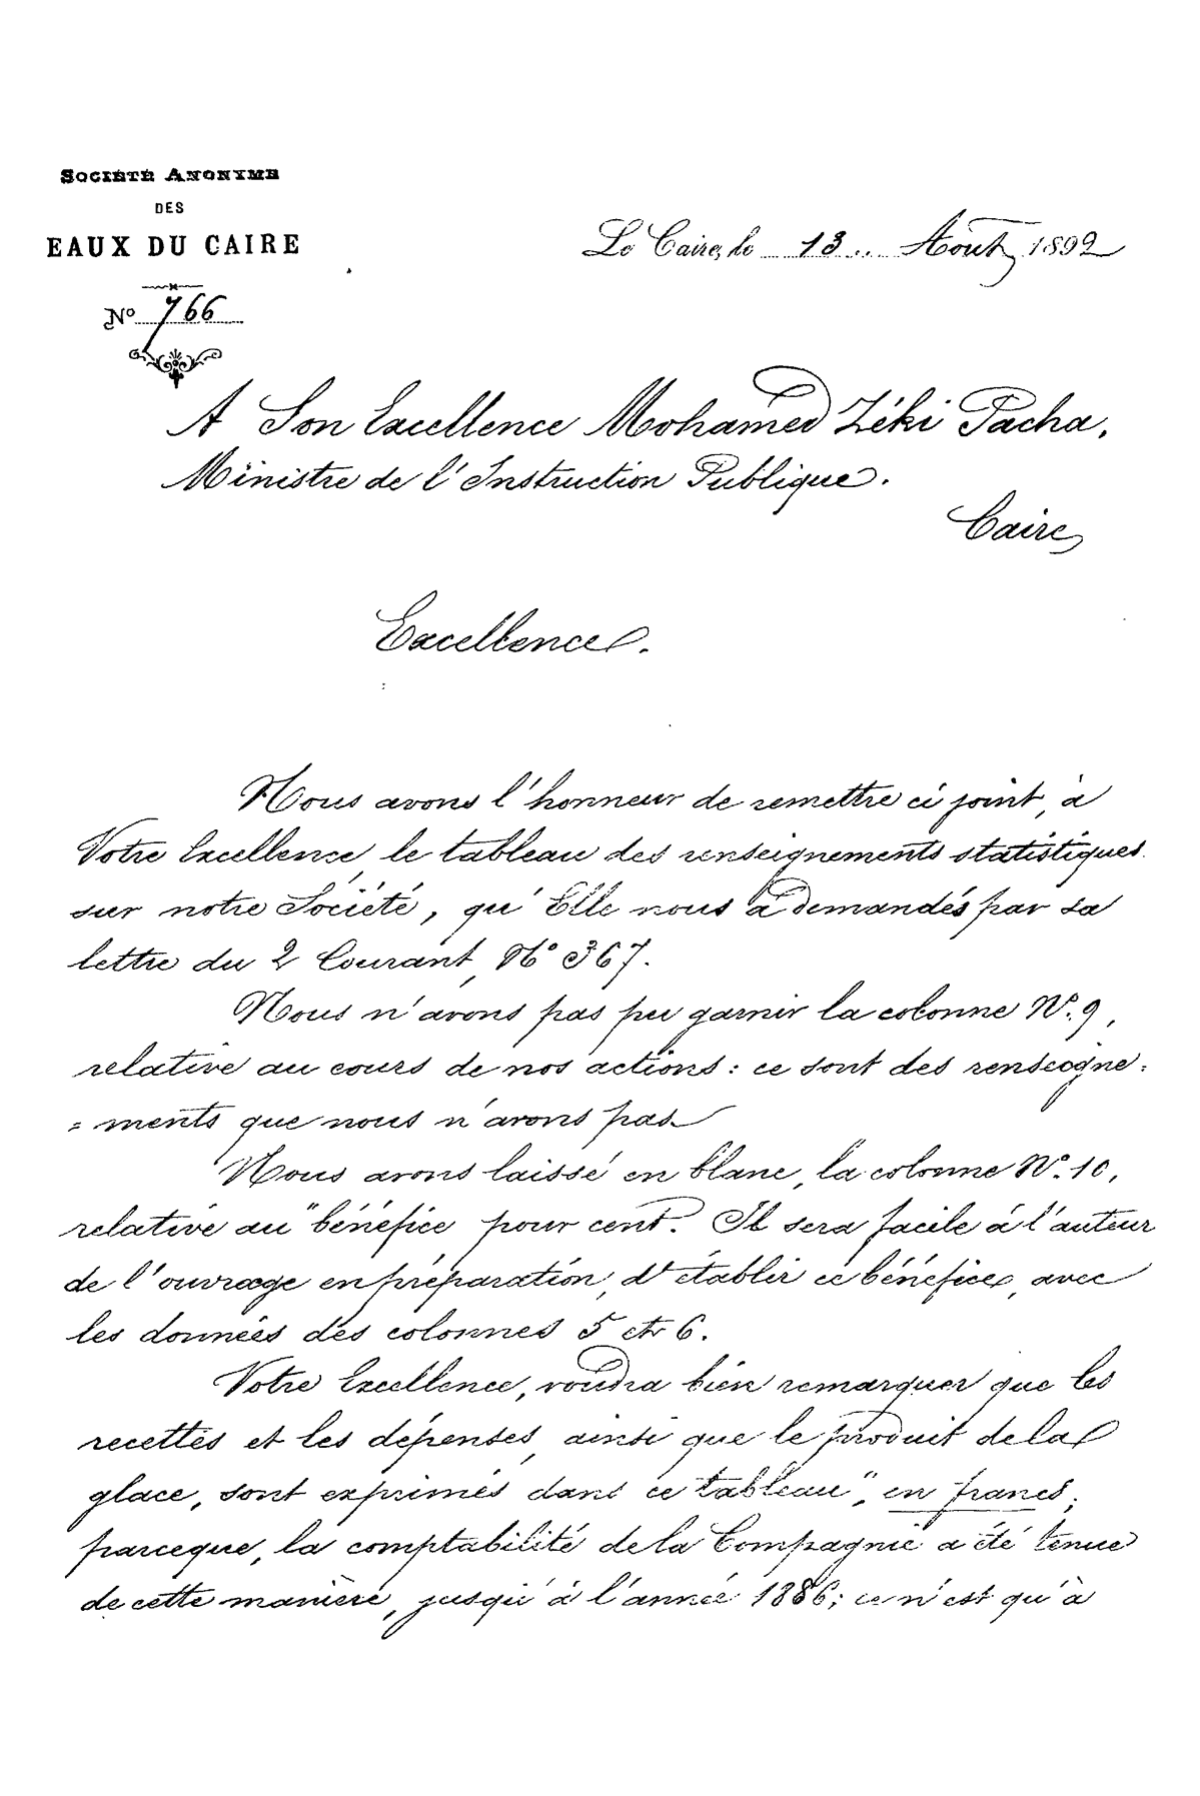 SOCIÉTÉ ANONYME
DES
EAUX DU CAIRE
Le Caire, le 13 Aout 1892
No 766
A Son Excellence Mohamed Zéki Pacha.
Ministre de l'Instruction Publique.
Caire
Excellence.
Nous avons l'honneur de remettre ci joint, à
Votre Excellence, le tableau des renseignements statistiques
sur notre Société, qu'Elle nous a demandés par sa
lettre du 2 Courant, No 367.
Nous n'avons pas pu garnir la colonne No. 9,
relative au cours de nos actions: ce sont des renseigne:
=ments que nous n'avons pas.
Nous avons laissé en blanc, la colonne No. 10,
relative au "bénéfice pour cent. Il sera facile à l'auteur
de l'ouvrage en préparation, d'établir ce bénéfice, avec
les données des colonnes 5 et 6.
Votre Excellence, voudra bien remarquer que les
recettes et les dépenses, ainsi que le produit de la
glace, sont exprimés dans ce tableau", en francs;
parceque, la comptabilité de la Compagnie a été tenue
de cette manière, jusqu'à l'année 1886; ce n'est qu'à